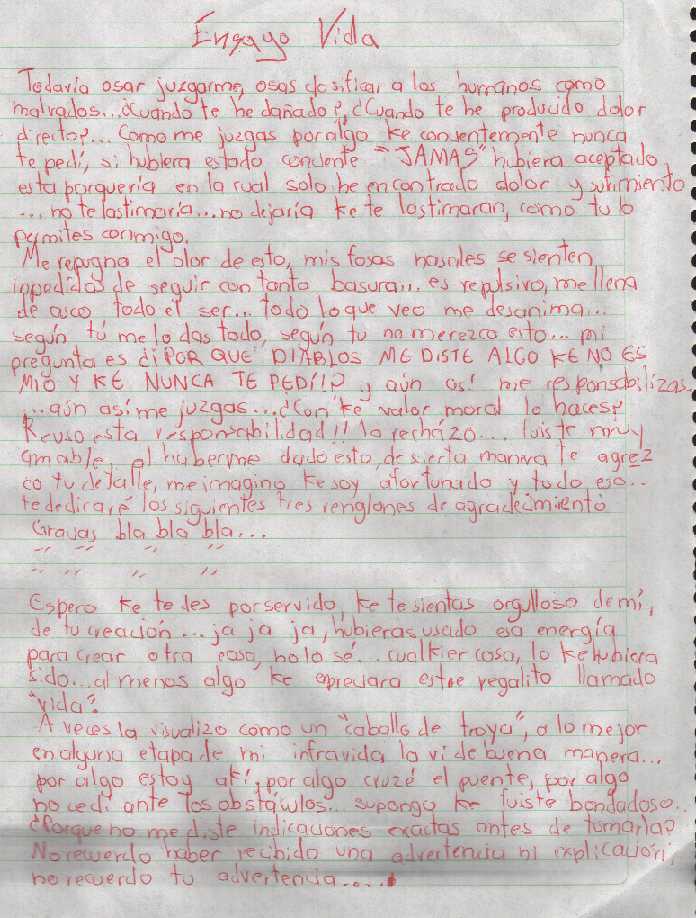 Ensayo Vida
Todavía osar juzgarme, osas clasificar a los humanos como
malvados... ¿Cuando te he dañado?, ¿Cuando te he producido dolor
directo?... Como me juzgas por algo ke concientemente nunca
te pedí, si hubiera estado conciente "JAMAS" hubiera aceptado
esta porquería en la cual solo he encontrado dolor y sufrimiento
... no te lastimaría... no dejaría ke te lastimaran, como tu lo
permites conmigo.
Me repugna el olor de esto, mis fosas nasales se sienten
inpedidas de seguir con tanta basura... es repulsivo, me llena
de asco todo el ser... todo lo que veo me desanima...
según tú me lo das todo, según tu no merezco esto... mi
pregunta es ¿¡POR QUE DIABLOS ME DISTE ALGO KE NO ES
MIO Y KE NUNCA TE PEDÍ!? y aún así me responsabilizas
... aún así me juzgas... ¿Con ke valor moral lo haces?
Reuso esta responsabilidad!! la rechazo... fuiste muy
amable el haberme dado esto, de sierta manera te agrez
co tu detalle, me imagino ke soy afortunado y todo eso...
te dedicaré los siguientes tres renglones de agradecimiento
Gracias bla bla bla...
" " " "
" " " "
Espero ke te des por servido, ke te sientas orgulloso de mí,
de tu creación... ja ja ja, hubieras usado esa energía
para crear otra cosa, no lo sé... cualkier cosa, lo ke hubiera
sido... al menos algo ke apreciara este regalito llamado
"vida".
A veces la visualizo como un "caballo de troya", a lo mejor
en alguna etapa de mi infravida la vi de buena manera...
por algo estoy akí, por algo cruzé el puente, por algo
no cedí ante los obstáculos... supongo ke fuiste bondadoso...
¿Porque no me diste indicaciones exactas antes de tomarla?
No recuerdo haber recibido una advertencia ni explicación,
no recuerdo tu advertencia.....